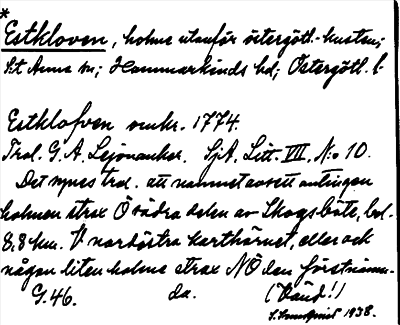 *
Estkloven, holme utanför östergötl.-kusten;
S:t Anna sn; Hammarkinds hd; Östergötl. l.
Estklofven omkr. 1774.
Trol. G. A. Lejonancker. SjA. Litt. VIII, N:o 10.
Det synes trol. att namnet avsett antingen
holmen strax Ö södra delen av Skogsböte, bel.
8,8 km. V nordöstra karthörnet, eller ock
någon liten holme strax NÖ den förstnämn-
G.46. da. (Vänd!)
1938.